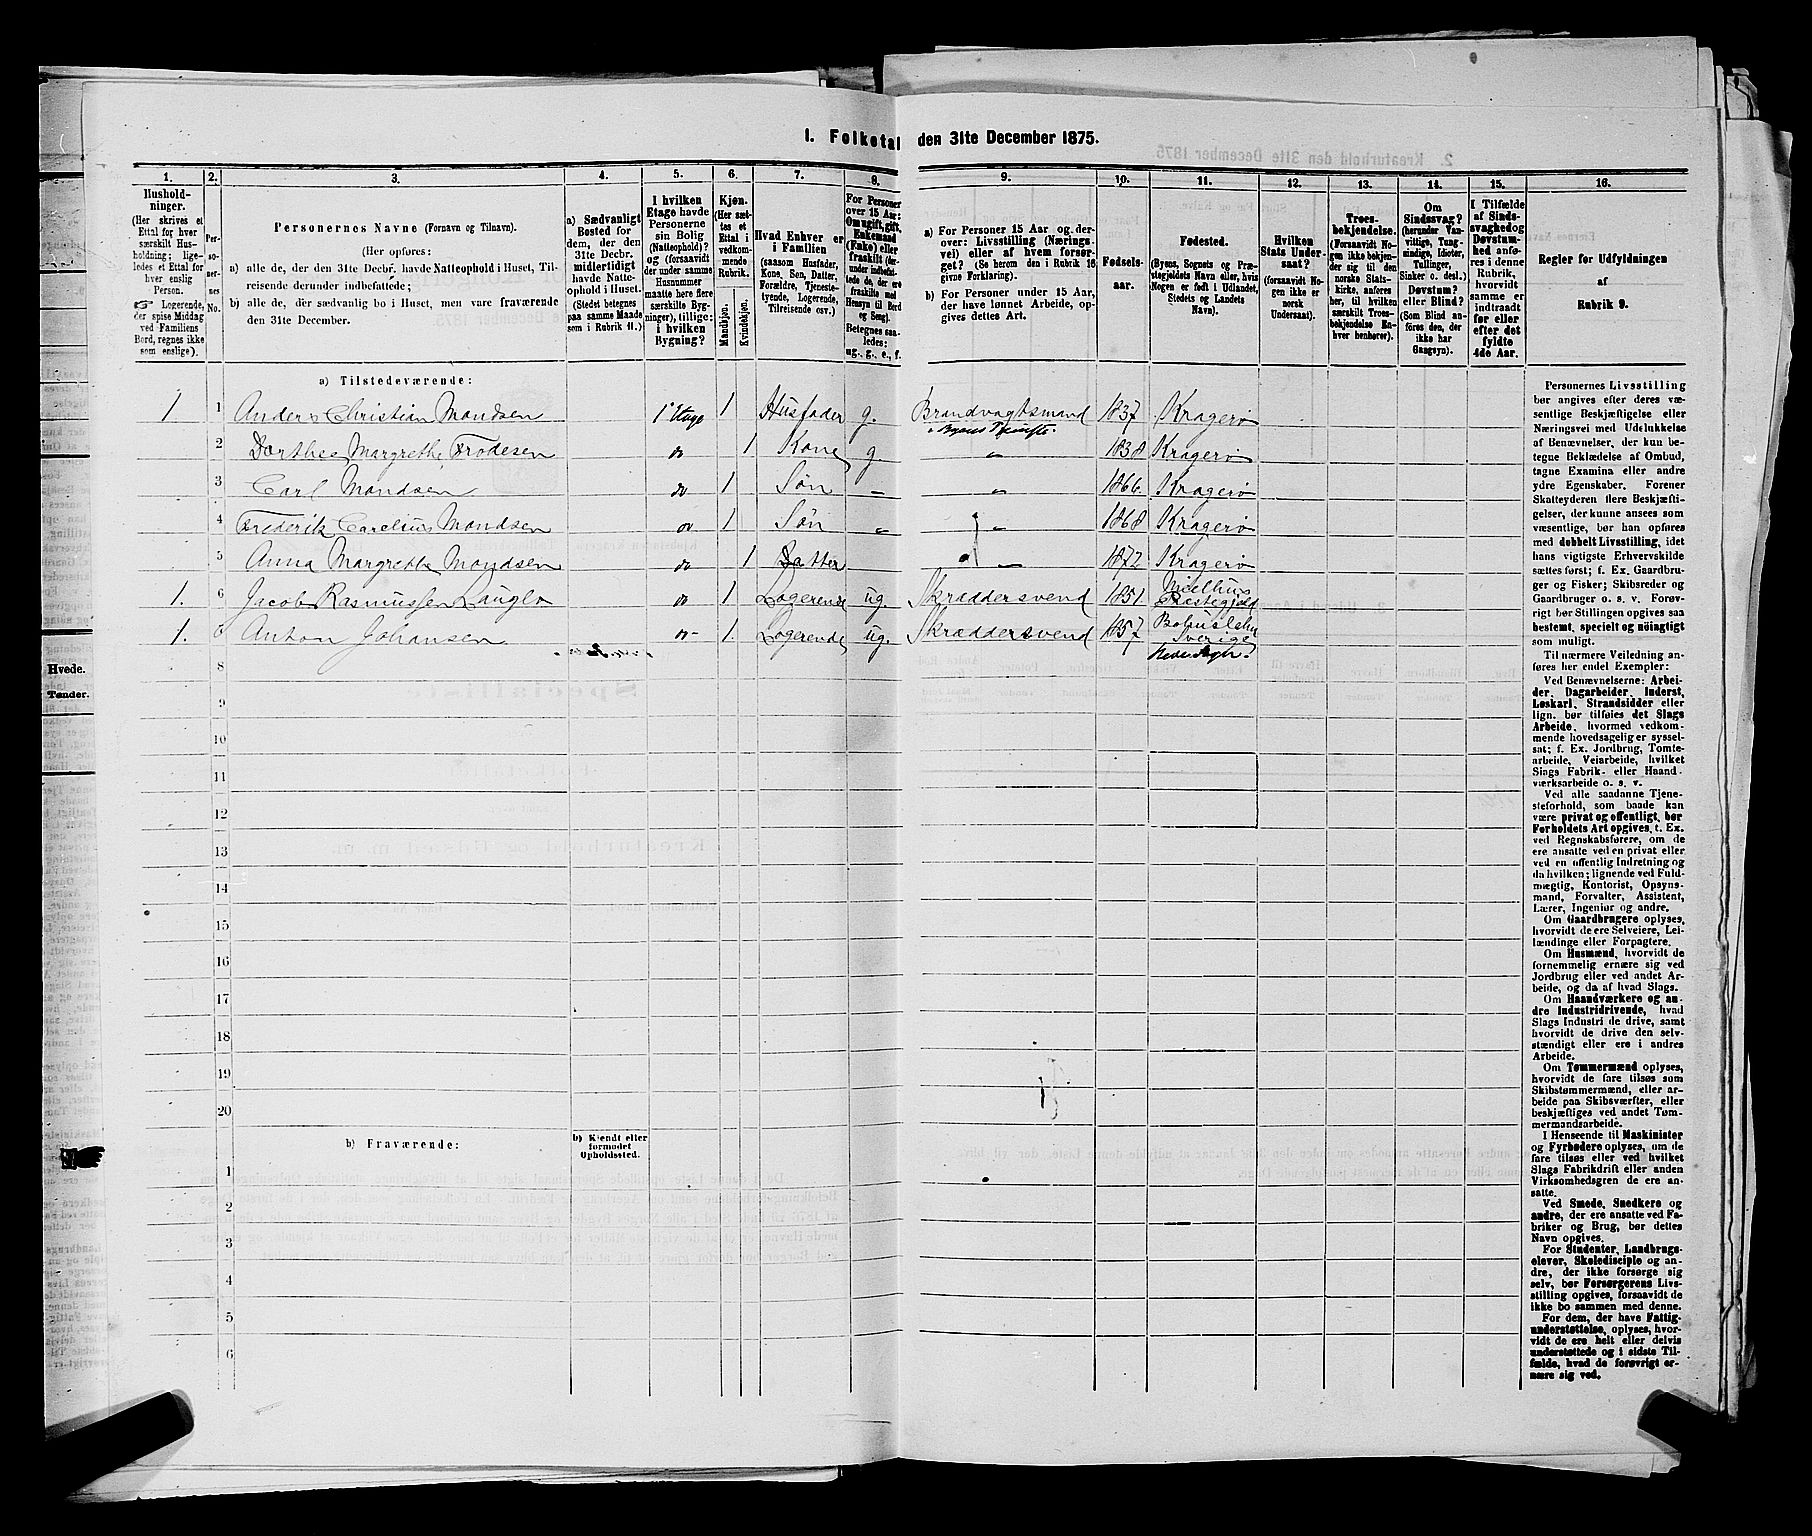 I. Folketal den 31te December 1875.
1. 2. 3. 4. 5. 6. 7. 8. 9. 10. 11. 12. 13. 14. 15. 16.
Hushold-
ninger.
(Her skrives et
Ettal for hver
særskilt Hus-
holdning; lige-
ledes et Ettal for
hver enslig
Person.
☞ Logerende,
der spise Middag
ved Familiens
Bord, regnes ikke
som enslige).
Per-
so-
ner-
nes
No.
Personernes Navne (Fornavn og Tilnavn).
(Her opføres:
a) alle de, der den 31te Decbr. havde Natteophold i Huset, Til-
reisende derunder indbefattede;
b) alle de, der sædvanlig bo i Huset, men vare fraværende
den 31te December.
a) Sædvanligt
Bosted for
dem, der den
31te Decbr.
midlertidigt
havde Natte-
ophold i Huset.
(Stedet betegnes
paa samme Maade
som i Rubrik 11.)
I hvilken
Etage havde
Personerne
sin Bolig
(Natteophold)?
og (forsaavidt
der under samme
Husnummer
maatte høre flere
særskilte Byg-
ninger), tillige:
i hvilken
Bygning?
Kjøn.
(Her sæt-
tes et
Ettal i
vedkom-
mende
Rubrik.
Mandkjøn.
Kvindekjøn.
Hvad Enhver er
i Familien
(saasom Husfader,
Kone, Søn, Datter,
Forældre, Tjeneste-
tyende, Logerende,
Tilreisende osv.)
For Personer
over 15 Aar:
Om ugift, gift,
Enkemand
(Enke) eller
fraskilt
Betegnes saa-
ledes:
ug., g., e., f.
a) For Personer 15 Aar og der-
over: Livsstilling (Nærings-
vei) eller af hvem forsør-
get? (Se herom den i Rubrik 16
givne Forklaring).
b) For Personer under 15 Aar,
der have lønnet Arbeide, op-
gives dettes Art.
Fødsels-
aar.
Fødested.
(Byens, Sognets og Præ-
stegjeldets Navn eller, hvis
Nogen er født i Udlandet,
Stedets og Landets
Navn).
Hvilken
Stats Under-
saat?
(forsaavidt No-
gen ikke er
norsk
Undersaat).
Troes-
bekjendelse.
(Forsaavidt No-
gen ikke bekjen-
der sig til den
norske Stats-
kirke, anføres
her, til hvilken
særskilt Troes-
bekjendelse En-
hver henhører).
Om
Sindssvag?
(herunder Van-
vittige, Tung-
sindige, Idioter,
Tullinger,
Sinker o. desl.)
Døvstum?
eller Blind?
(Som Blind an-
føres den, der
ikke har
Gangsyn).
I Tilfælde
af Sinds-
svaghed og
Døvstum-
hed anfø-
res i denne
Rubrik,
hvorvidt
samme er
indtraadt
før eller
efter det
fyldte
4de Aar.
Regler for Udfyldningen
af
Rubrik 9.
a) Tilstedeværende:
1 1 Anders Christian Mondsen 1 Etage 1 Husfader g. Brandvagtsmand 1837 Kragerø
2 Dorthea Margrethe Frodesen do 1 Kone g. „ 1838 Kragerø
3 Carl Mondsen do 1 Søn – „ 1866 Kragerø
4 Frederik Carelius Mondsen do 1 Søn „ „ 1868 Kragerø
5 Anna Margrethe Mondsen do 1 Datter „ 1872 Kragerø
1. 6 Jacob Rasmussen Lauglo do 1 Logerende ug. Skræddersvend 1851 Præstegjeld
1. Anton Johansen do 1. Logerende ug. Skræddersvend 1857 Sverige
8
9
10
11
12
13
14
15
16
17
18
19
20
b) Fraværende:
b) Kjendt eller
formodet
Opholdssted.
1
2
3
4
5
6
Personernes Livsstilling
bør angives efter deres væ-
sentlige Beskjæftigelse eller
Næringsvei med Udelukkelse
af Benævnelser, der kun be-
tegne Beklædelse af Ombud,
tagne Examina eller andre
ydre Egenskaber. Forener
Skatteyderen flere Beskjæfti-
gelser, der kunne ansees som
væsentlige, bør han opføres
med dobbelt Livsstilling, idet
hans vigtigste Erhvervskilde
sættes først; f. Ex. Gaardbru-
ger og Fisker; Skibsreder og
Gaardbruger o. s. v. Forøv-
rigt bør Stillingen opgives saa
bestemt, specielt og nöiagtigt
som muligt.
Til nærmere Veiledning an-
føres her endel Exempler:
Ved Benævnelserne: Arbei-
der, Dagarbeider, Inderst,
Løskarl, Strandsidder eller
lign. bør tilføies det Slags
Arbeide, hvormed vedkom-
mende hovedsagelig er syssel-
sat; f. Ex. Jordbrug, Tomte-
arbeide, Veiarbeide, hvilket
Slags Fabrik- eller Haand-
værksarbeide o. s. v.
Ved alle saadanne Tjene-
steforhold, som baade kan
være privat og offentligt, bør
Forholdets Art opgives, t. Ex.
ved Regnskabsførere, om de
ere ansatte ved en privat eller
ved en offentlig Indretning og
da hvilken; lignende ved Fuld-
mægtig, Kontorist, Opsyns-
mand, Forvalter, Assistent,
Lærer, Ingeniør og andre.
Om Gaardbrugere oplyses,
hvorvidt de ere Selveiere, Lei-
lændinge eller Forpagtere.
Om Husmænd, hvorvidt de
fornemmelig ernære sig ved
Jordbrug eller ved andet Ar-
beide, og da af hvad Slags.
Om Haandværkere og an-
dre Industridrivende, hvad
Slags Industri de drive, samt
hvorvidt de drive den selv-
stændigt eller ere i andres
Arbeide.
Om Tømmermænd oplyses,
hvorvidt de fare tilsøs som
Skibstømmermænd, eller ar-
beide paa Skibsværfter, eller
beskjæftiges ved andet Tøm-
mermandsarbeide.
I Henseende til Maskinister
og Fyrbødere oplyses, om de
fare tilsøs eller ved hvilket
Slags Fabrikdrift eller anden
Virksomhedsgren de ere an-
satte.
Ved Smede, Snedkere og
andre, der ere ansatte ved Fa-
briker og Brug, bør dettes
Navn opgives.
For Studenter, Landbrugs-
elever, Skoledisciple og an-
dre, der ikke forsørge sig
selv, bør Forsørgerens Livs-
stilling opgives, forsaavidt de
ikke bo sammen med denne.
For dem, der have Fattig-
understøttelse, oplyses, hvor-
vidt de ere helt eller delvis
understøttede og i sidste Til-
fælde, hvad de forøvrigt er-
nære sig ved.
Hvede.
Tønder.